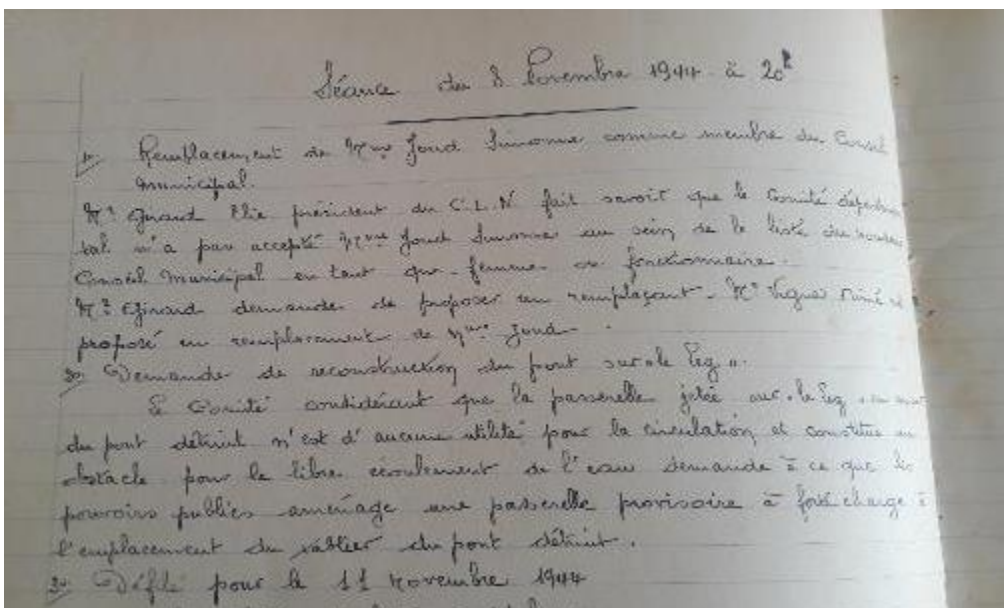 Séance du 8 Novembre 1944 à 20h
1o Remplacement de Mme Jond Simonne comme membre du Conseil
municipal.
Mr Girard Elie président du C.L.N fait savoir que le Comité départemen
tal n'a pas accepté Mme Jond Simonne au sein de la liste du nouveau
Conseil Municipal en tant que femme de fonctionnaire.
Mr Girard demande de proposer un remplaçant. Mr Vigne est
proposé en remplacement de Mme Jond.
2o Demande de reconstruction du pont sur le Lez".
Le Comité considérant que la passerelle jetée sur le Lez
du pont détruit n'est d'aucune utilité pour la circulation et constitue un
obstacle pour le libre écoulement de l'eau demande à ce que les
pouvoirs publics aménage une passerelle provisoire à forte charge à
l'emplacement du tablier du pont détruit.
3o Défilé pour le 11 novembre 1944